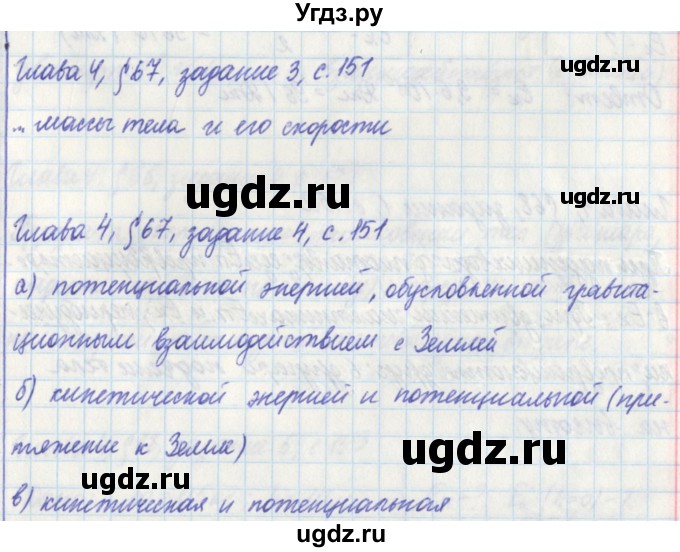 Угдз.ру
Глава 4, § 67, задание 3, с. 151
... массы тела и его скорости
ugdz.ru
ugdz.ru
Глава 4, § 67, задание 4, с. 151
а) потенциальной энергией, обусловленной гравита-
ugdz.ru
ционным взаимодействием с Землей
б) кинетической энергией и потенциальной (при-
ugdz.ru
тяжение к Земле)
ugdz.ru
в) кинетическая и потенциальная
ugdz.ru